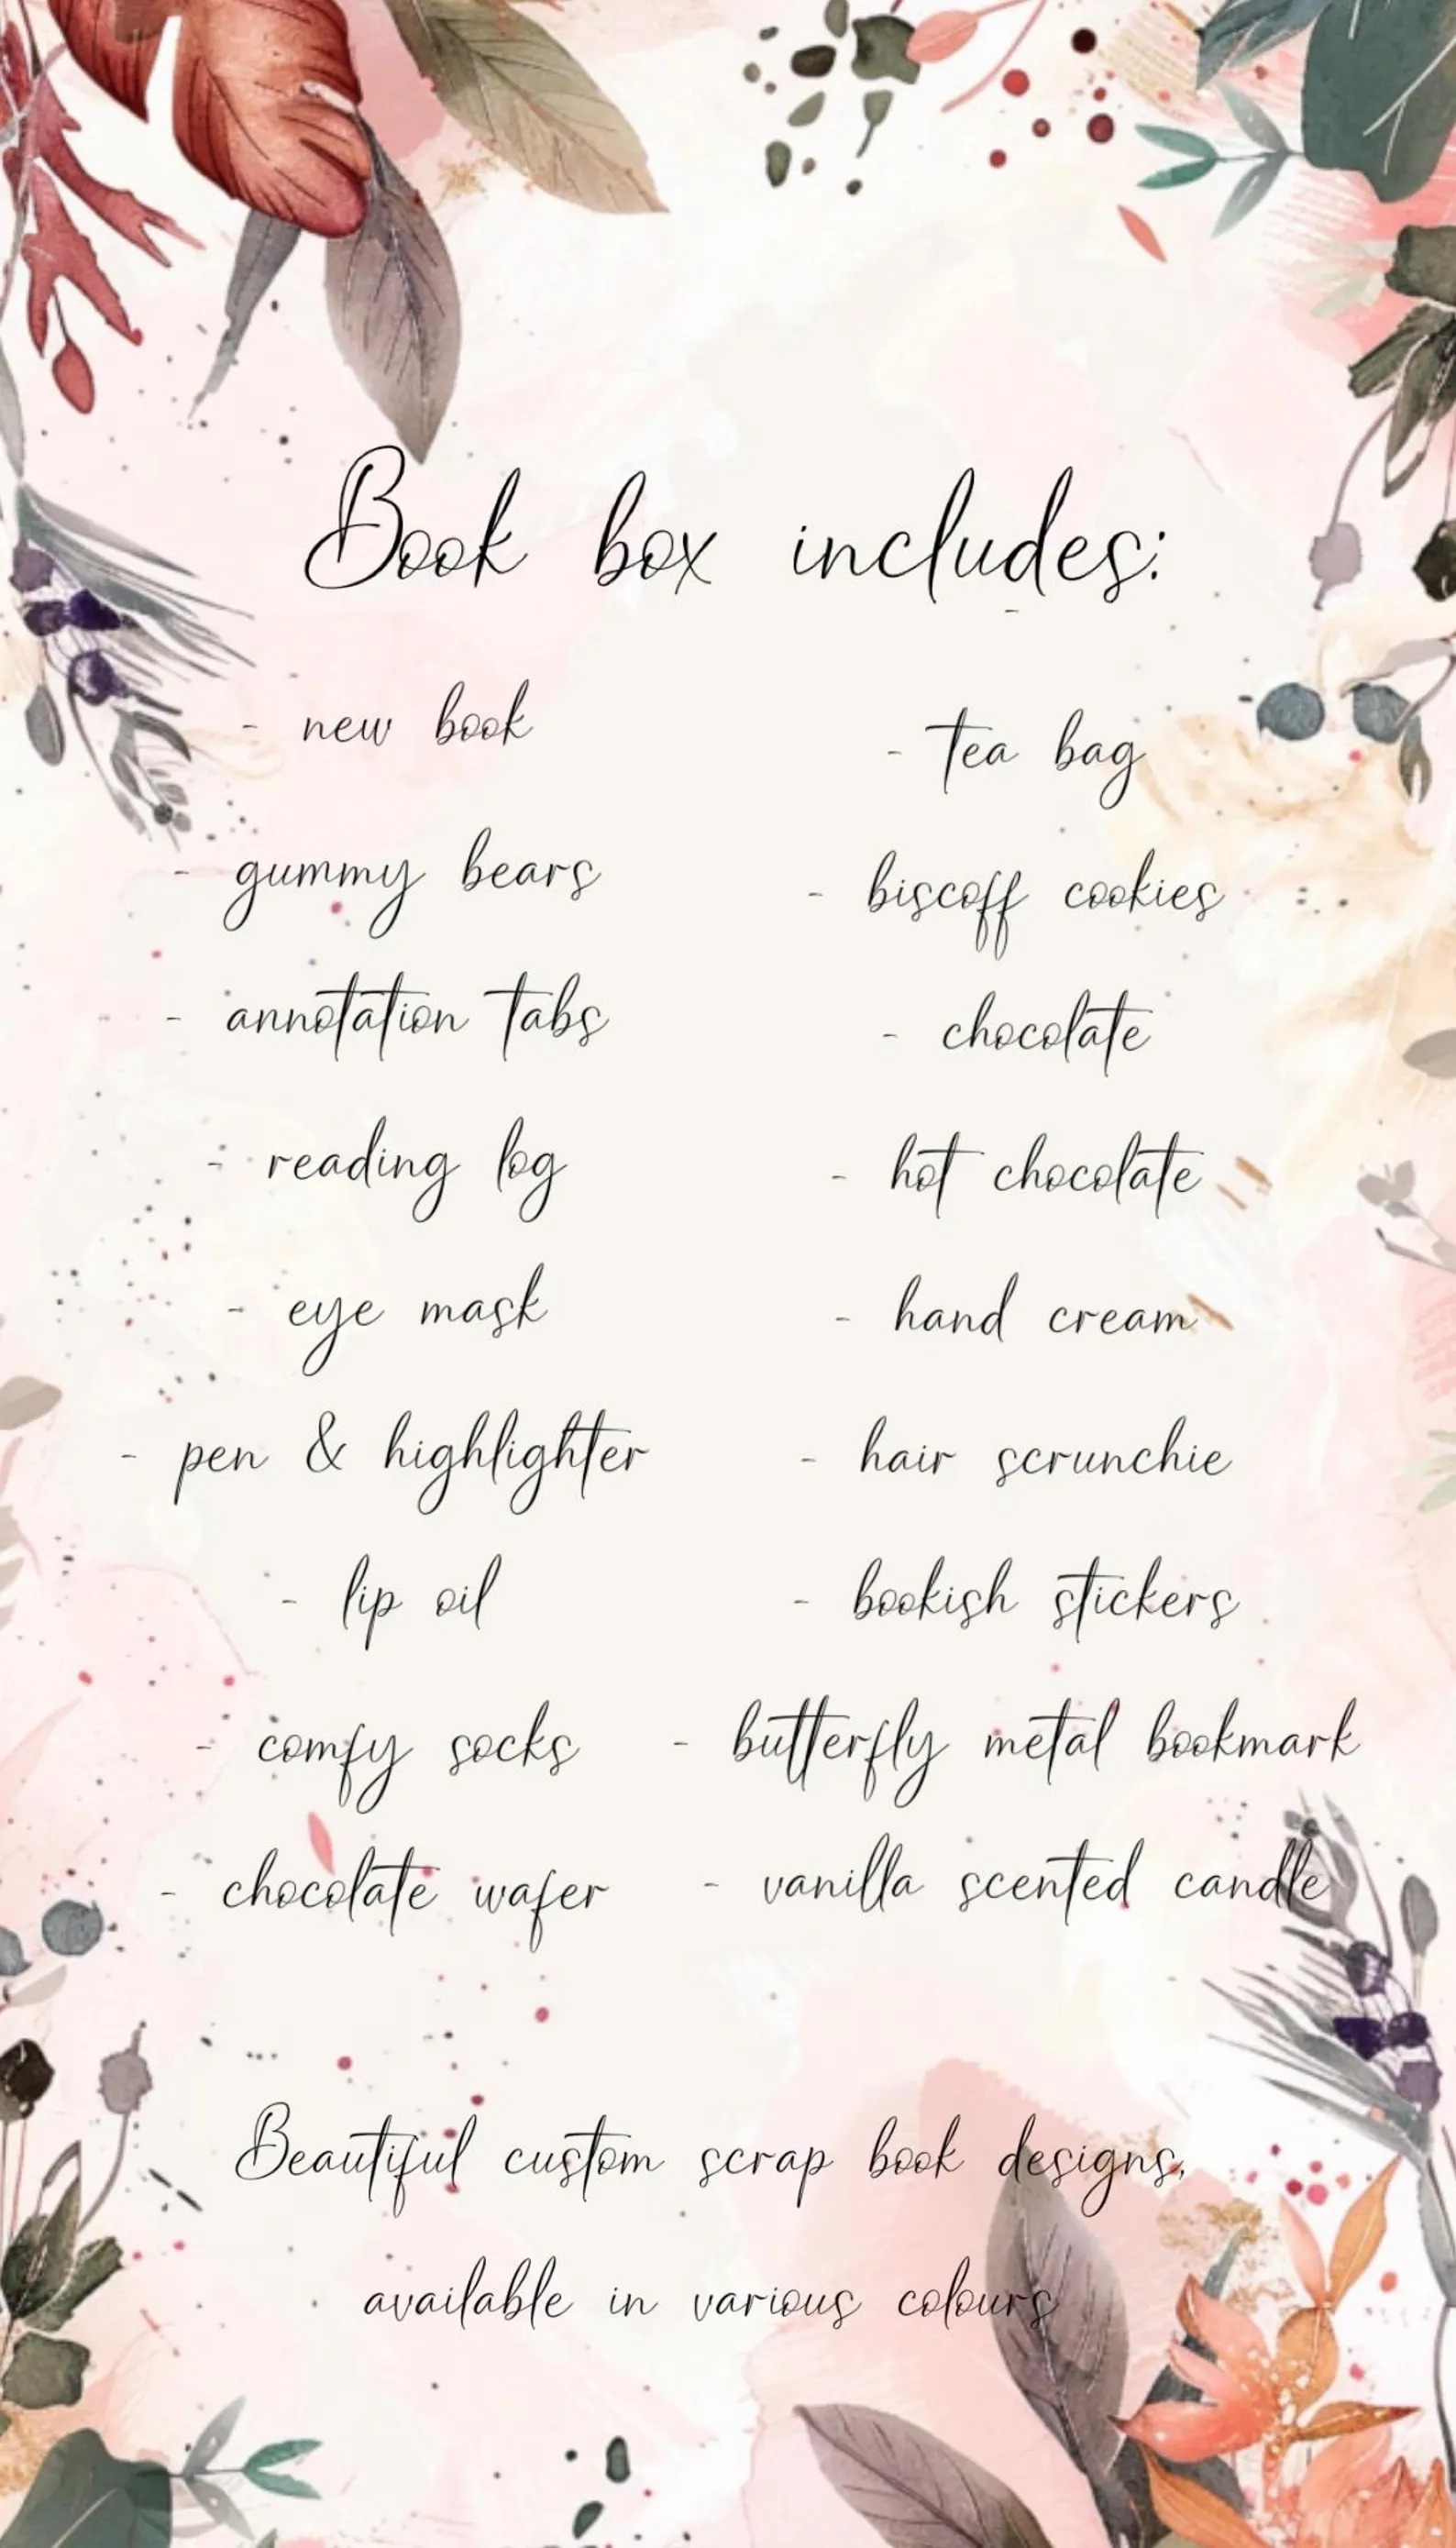 Book box includes:
- new book
- gummy bears
- annotation tabs
- reading log
- eye mask
- pen & highlighter
- lip oil
- comfy socks
- chocolate wafer
-
- tea bag
- biscoff cookies
- chocolate
- hot chocolate
- hand cream
- hair scrunchie
- bookish stickers
- butterfly metal bookmark
- vanilla scented candle
Beautiful custom scrap book designs,
available in various colours